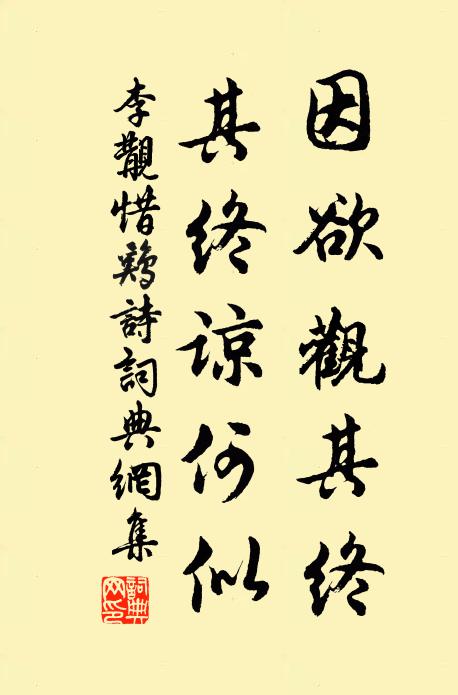 因欲觀其終
其終諒何似
李覯惜鷄詩詞典網集
詞典
网印